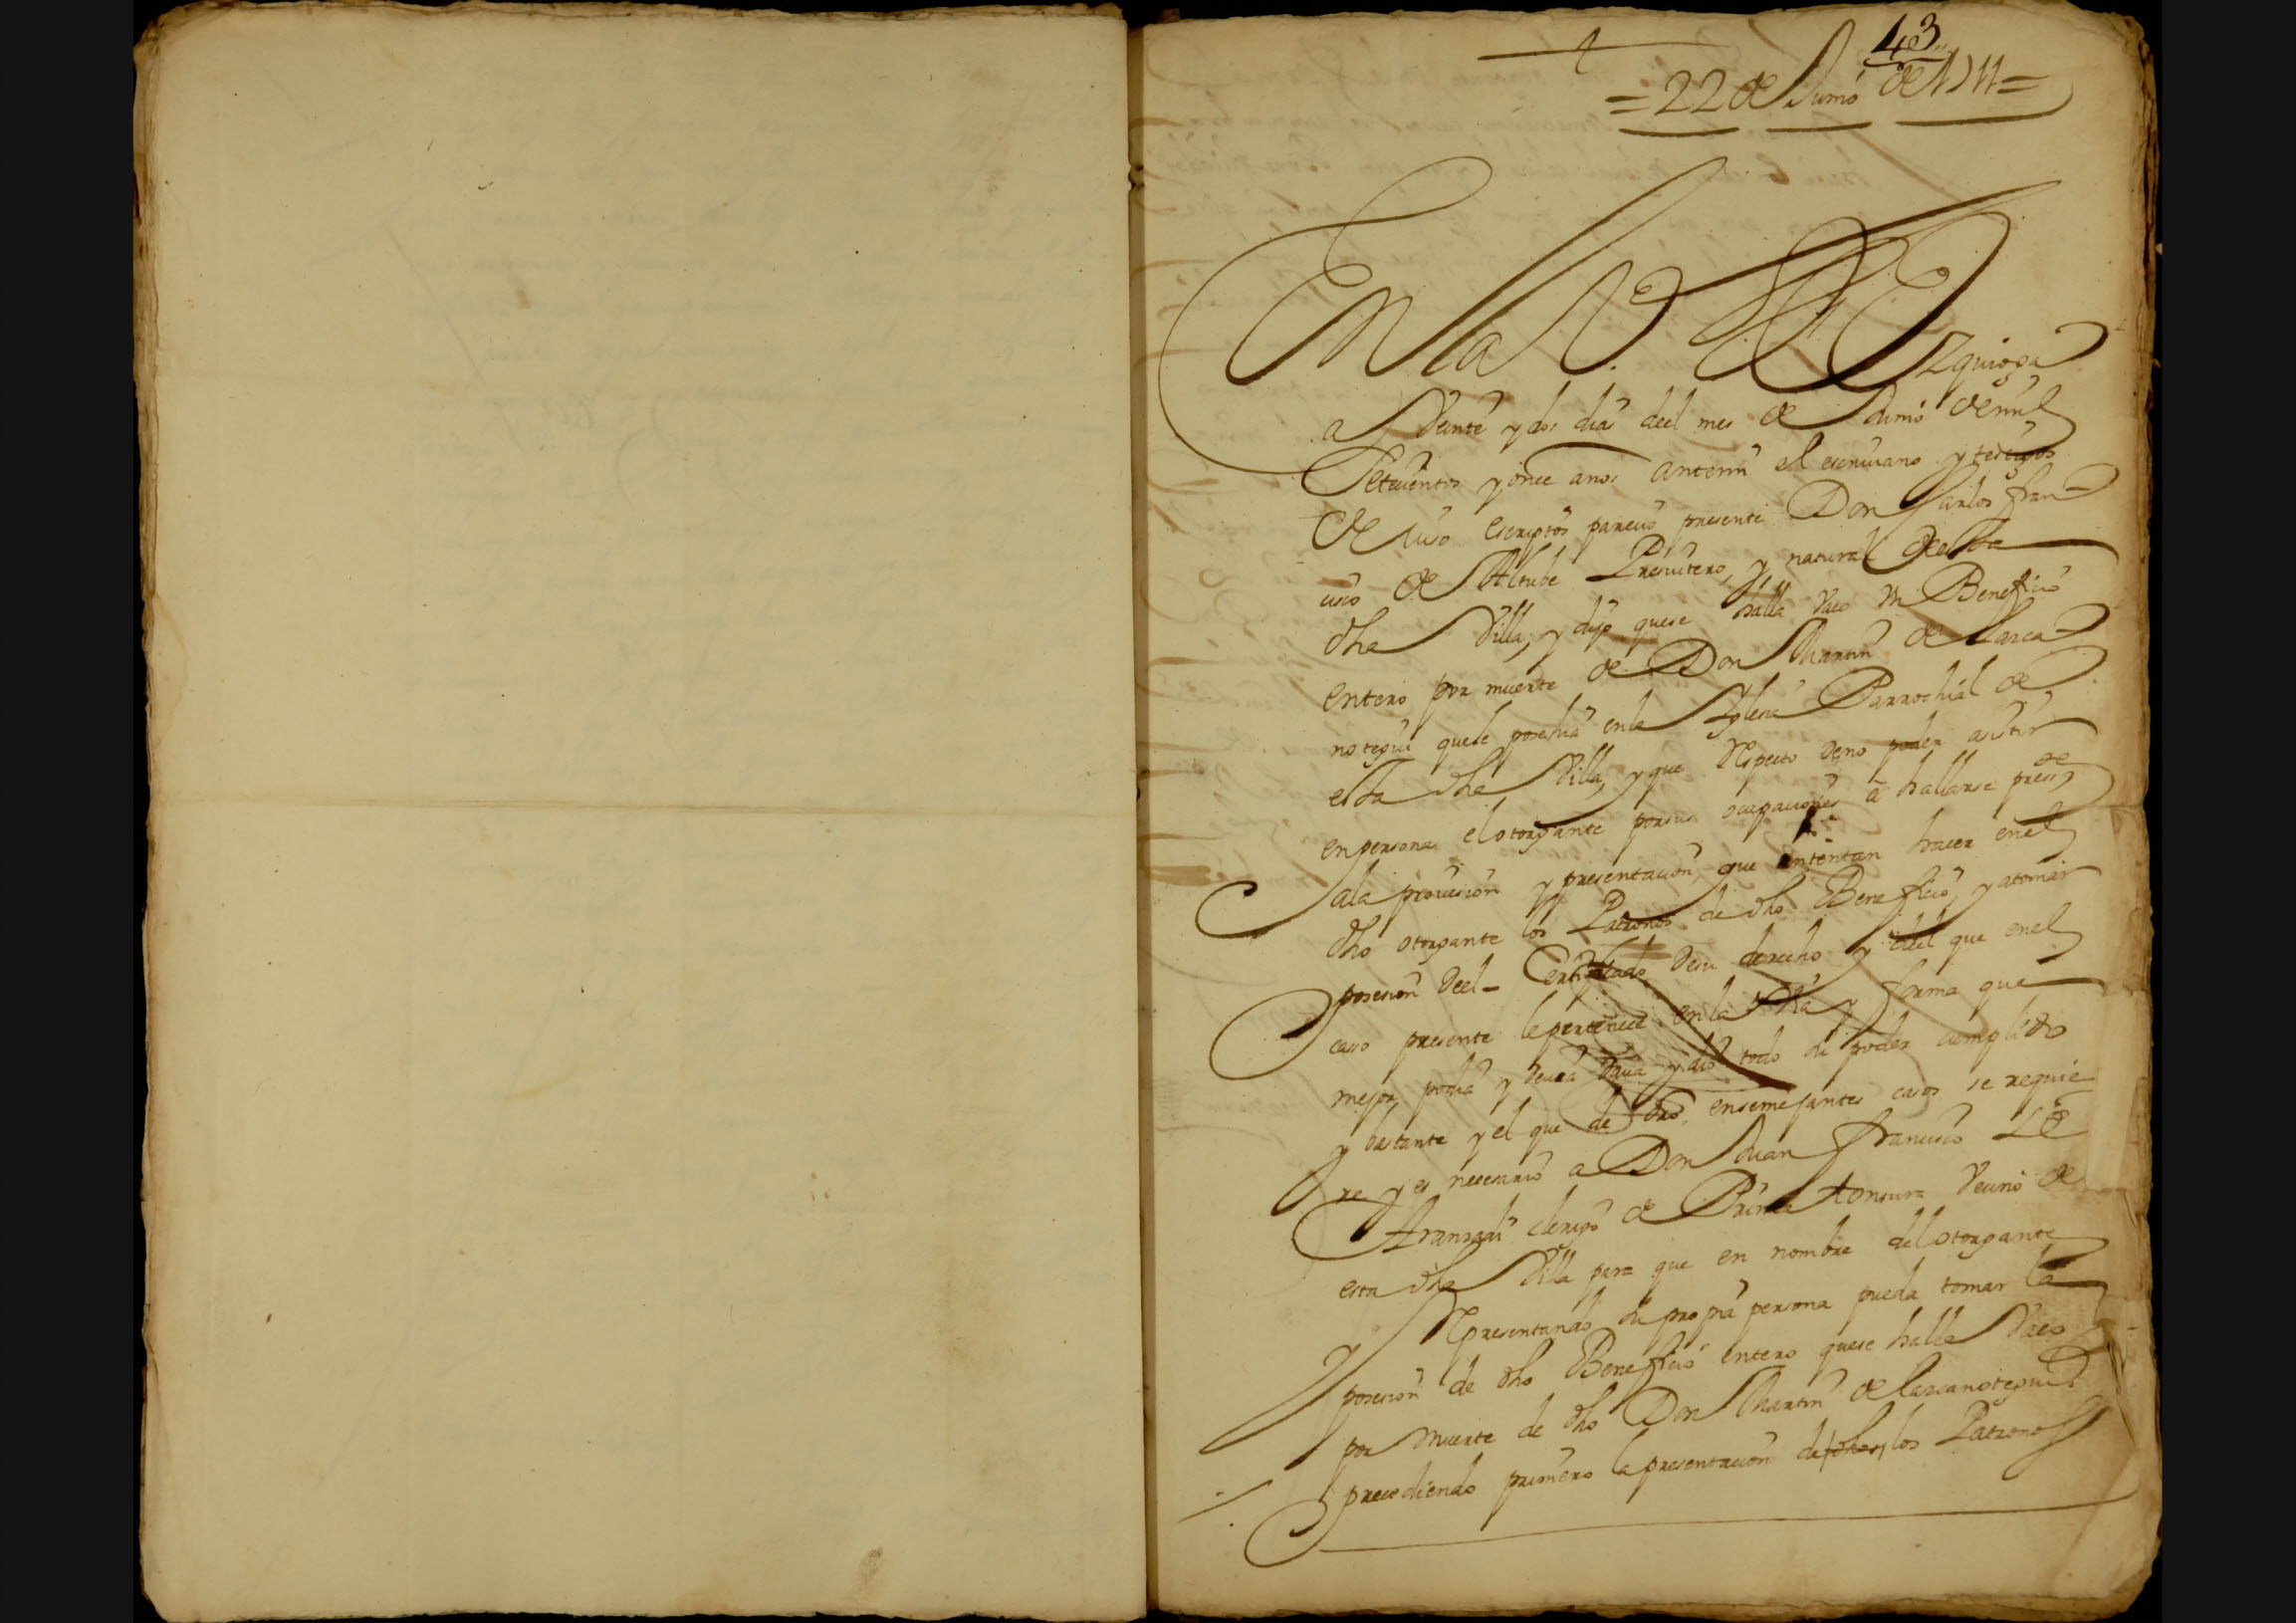 43
= 22 de Junio de 1711 =
En la V.ª de Ezquioga
a Veinte y dos dias deel mes de Junio de mil
Setecientos y once anos antemi el escriuano y testigos
de iuso escriptos parecio presente Don Carlos fran
cisco de Altube Presuitero, y natural de esta
dha Villa, y dijo quese halla Vaco Vn Beneficio
entero por muerte de Don Martin de Larca
notegui quele posehia enla Yglesia Parrochial de
esta dha Villa, y que Respecto deno poder asistir
enpersona el otorgante porsus ocupaciones a hallarse press.te
ala prouision y presentacion, que intentan hacer enel
dho otorgante los Patronos de dho Beneficio, y atomar
posesion deel - Certificado desu derecho y deel que enel
caso presente lepertenece, en la Via y forma que
mejor podia y deuia daua y dio todo su poder cumplido
y bastante y el que de dro, ensemejantes casos se requie
re y es necesario a Don Juan francisco de
Aranzadi clerigo de Prima tonsura Vecino de
esta dha Villa para que en nombre del otorgante
y Representando su propia persona pueda tomar la
posesion de dho Beneficio entero quese halla Vaco
por muerte de dho Don Martin de Larcanotegui
precediendo primero la presentacion de /dhos/ los Patronos